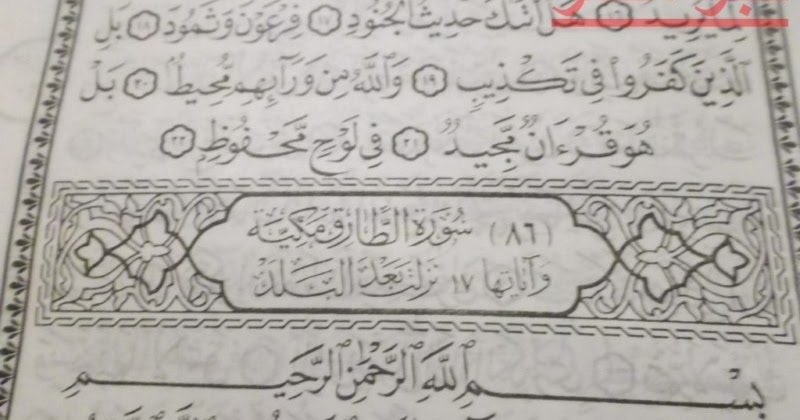 هَلْ أَتَىٰكَ حَدِيثُ ٱلْجُنُودِ ١٧ فِرْعَوْنَ وَثَمُودَ ١٨ بَلِ
ٱلَّذِينَ كَفَرُوا۟ فِى تَكْذِيبٍ ١٩ وَٱللَّهُ مِن وَرَآئِهِم مُّحِيطٌۢ ٢٠ بَلْ
هُوَ قُرْءَانٌ مَّجِيدٌ ٢١ فِى لَوْحٍ مَّحْفُوظٍۭ ٢٢
(٨٦) سُورَة الطَّارِق مَكيَّة
وَآيَاتُهَا ١٧ نَزَلَت بَعْدَ البَلَد
بِسْمِ ٱللَّهِ ٱلرَّحْمَٰنِ ٱلرَّحِيمِ